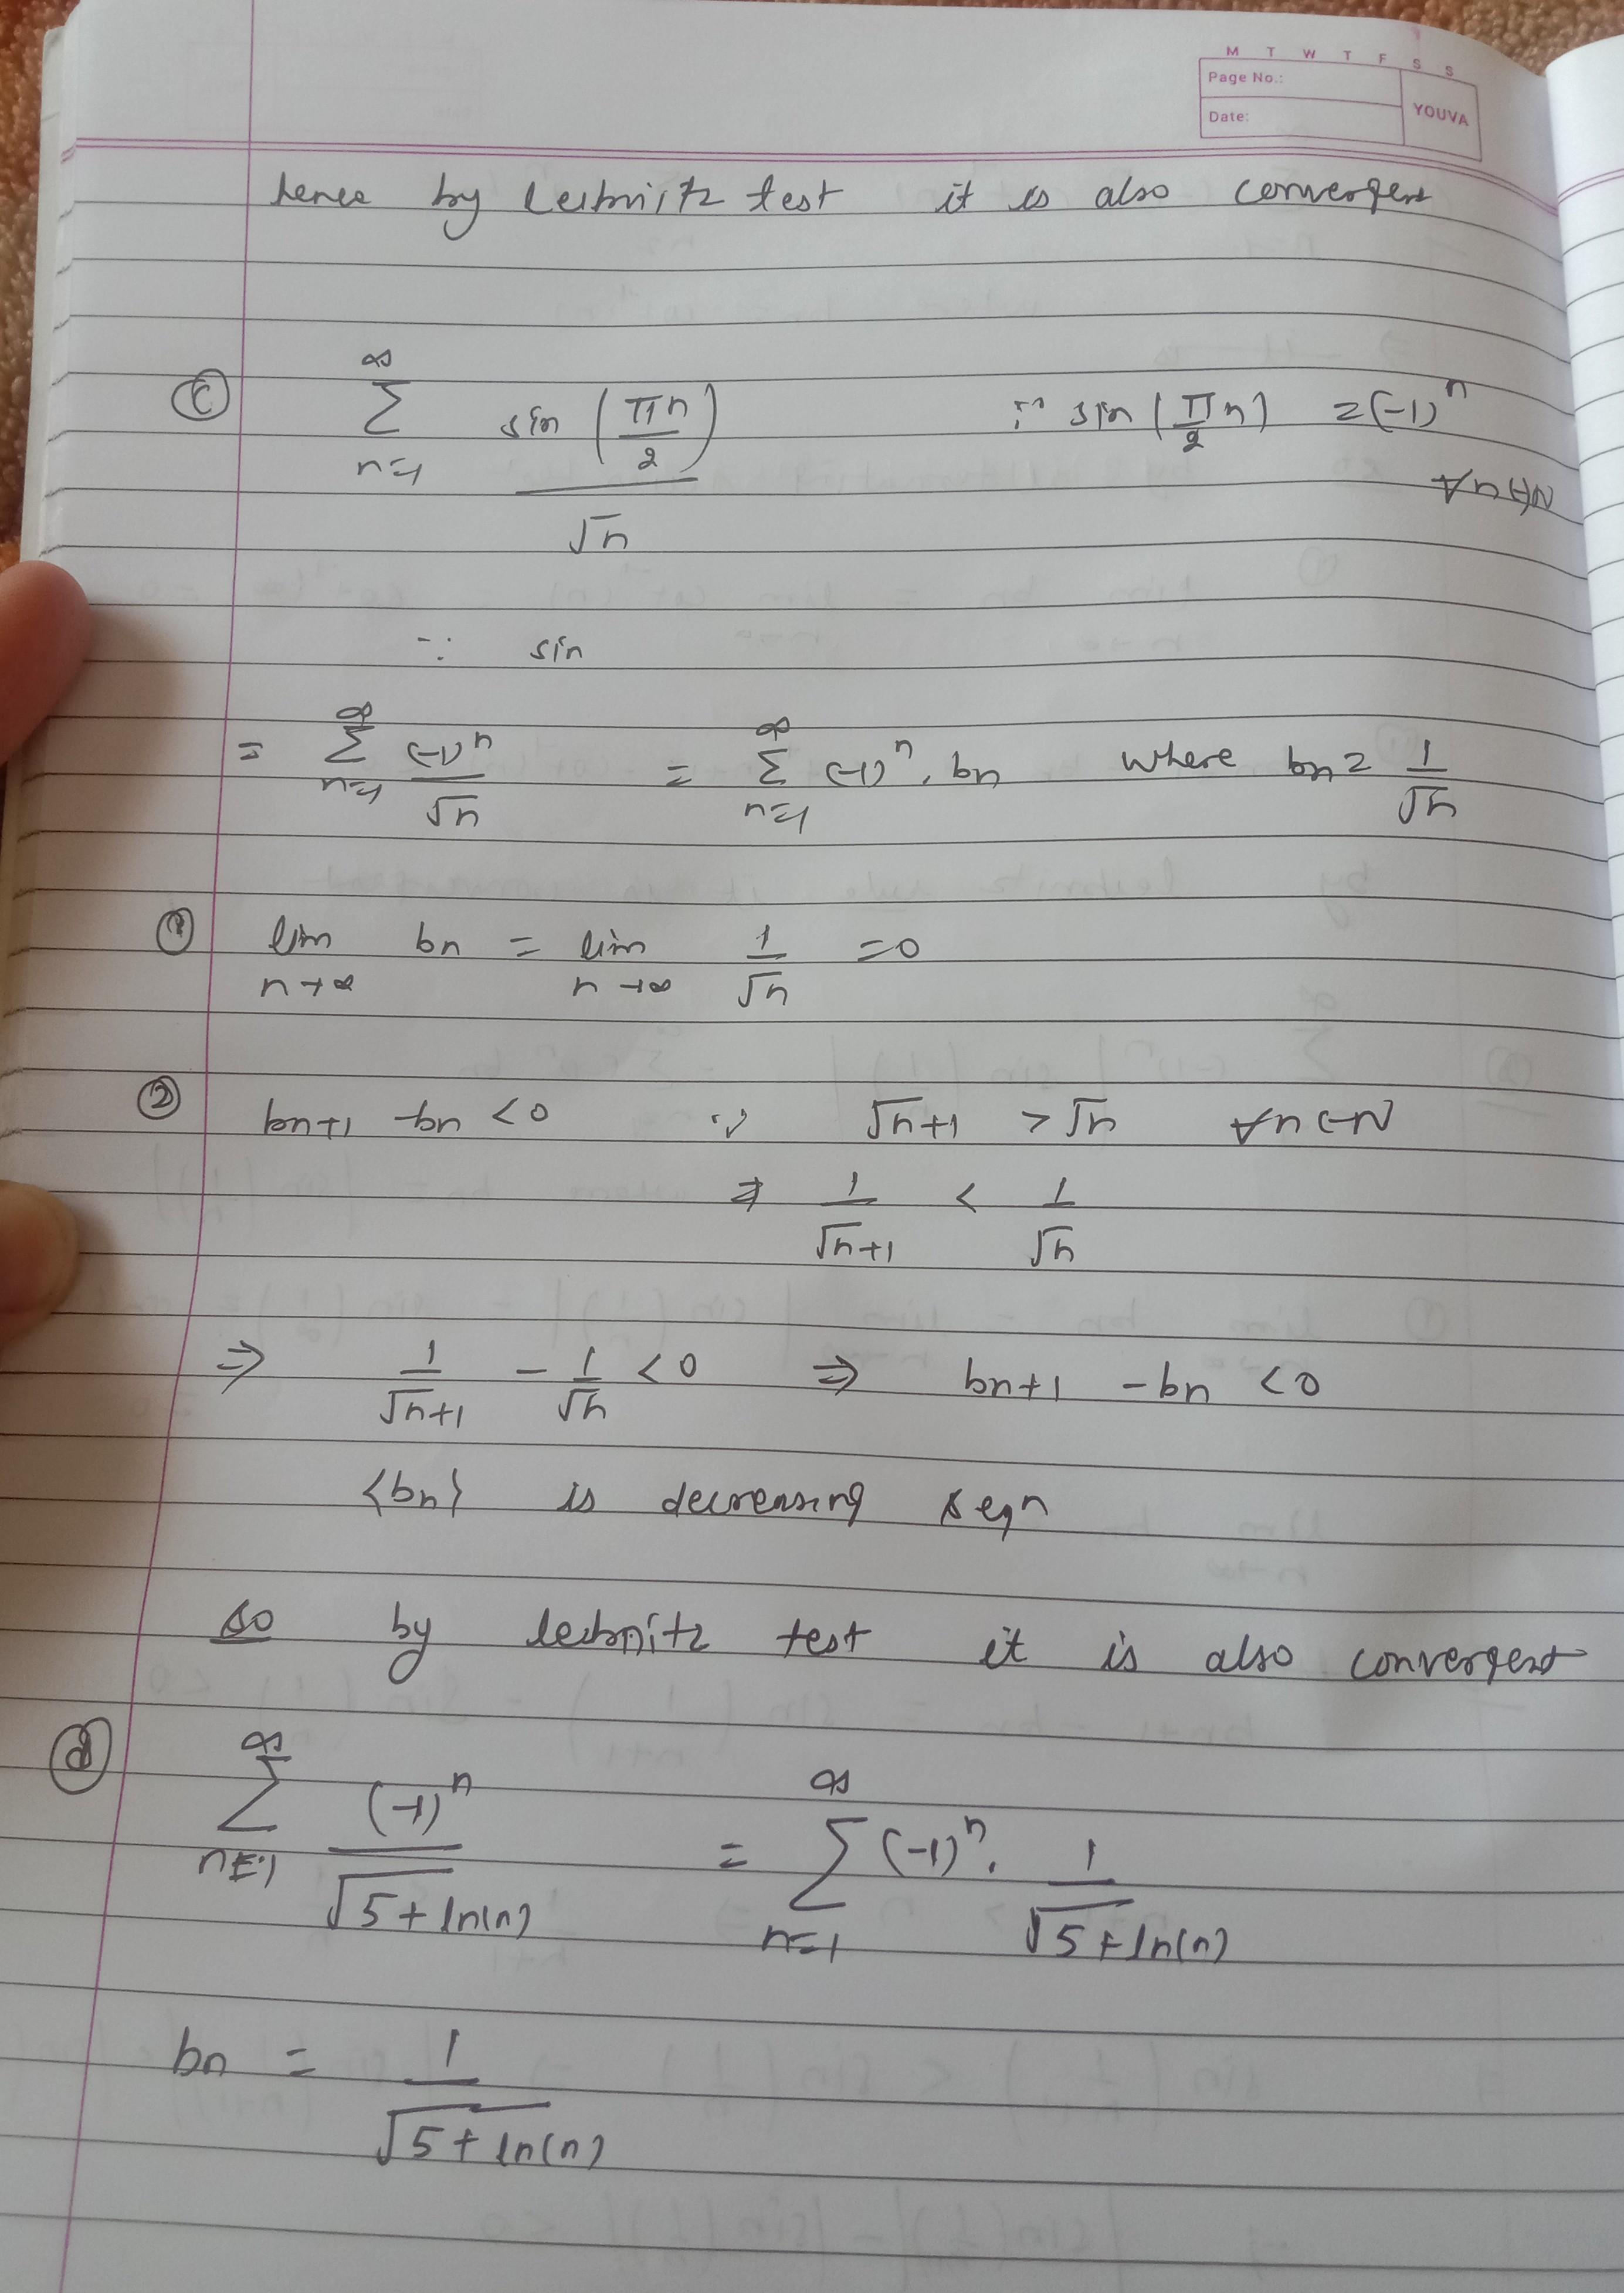 M T W T F S S
Page No.:
Date:
YOUVA
hence by Leibnitz test it is also convergent
(c) ∞ Σ n=1 sin (πn/2) / √n ∵ sin (πn/2) = (-1)^n
∀n∈N
∵ sin
= ∞ Σ n=1 (-1)^n / √n = ∞ Σ n=1 (-1)^n . bn where bn = 1/√n
(1) lim n→∞ bn = lim n→∞ 1/√n = 0
(2) bn+1 - bn < 0 ∵ √n+1 > √n ∀n∈N
⇒ 1/√n+1 < 1/√n
⇒ 1/√n+1 - 1/√n < 0 ⇒ bn+1 - bn < 0
<bn> is decreasing seqn
so by leibnitz test it is also convergent
(d) ∞ Σ n=1 (-1)^n / √5+ln(n) = ∞ Σ n=1 (-1)^n . 1/√5+ln(n)
bn = 1/√5+ln(n)